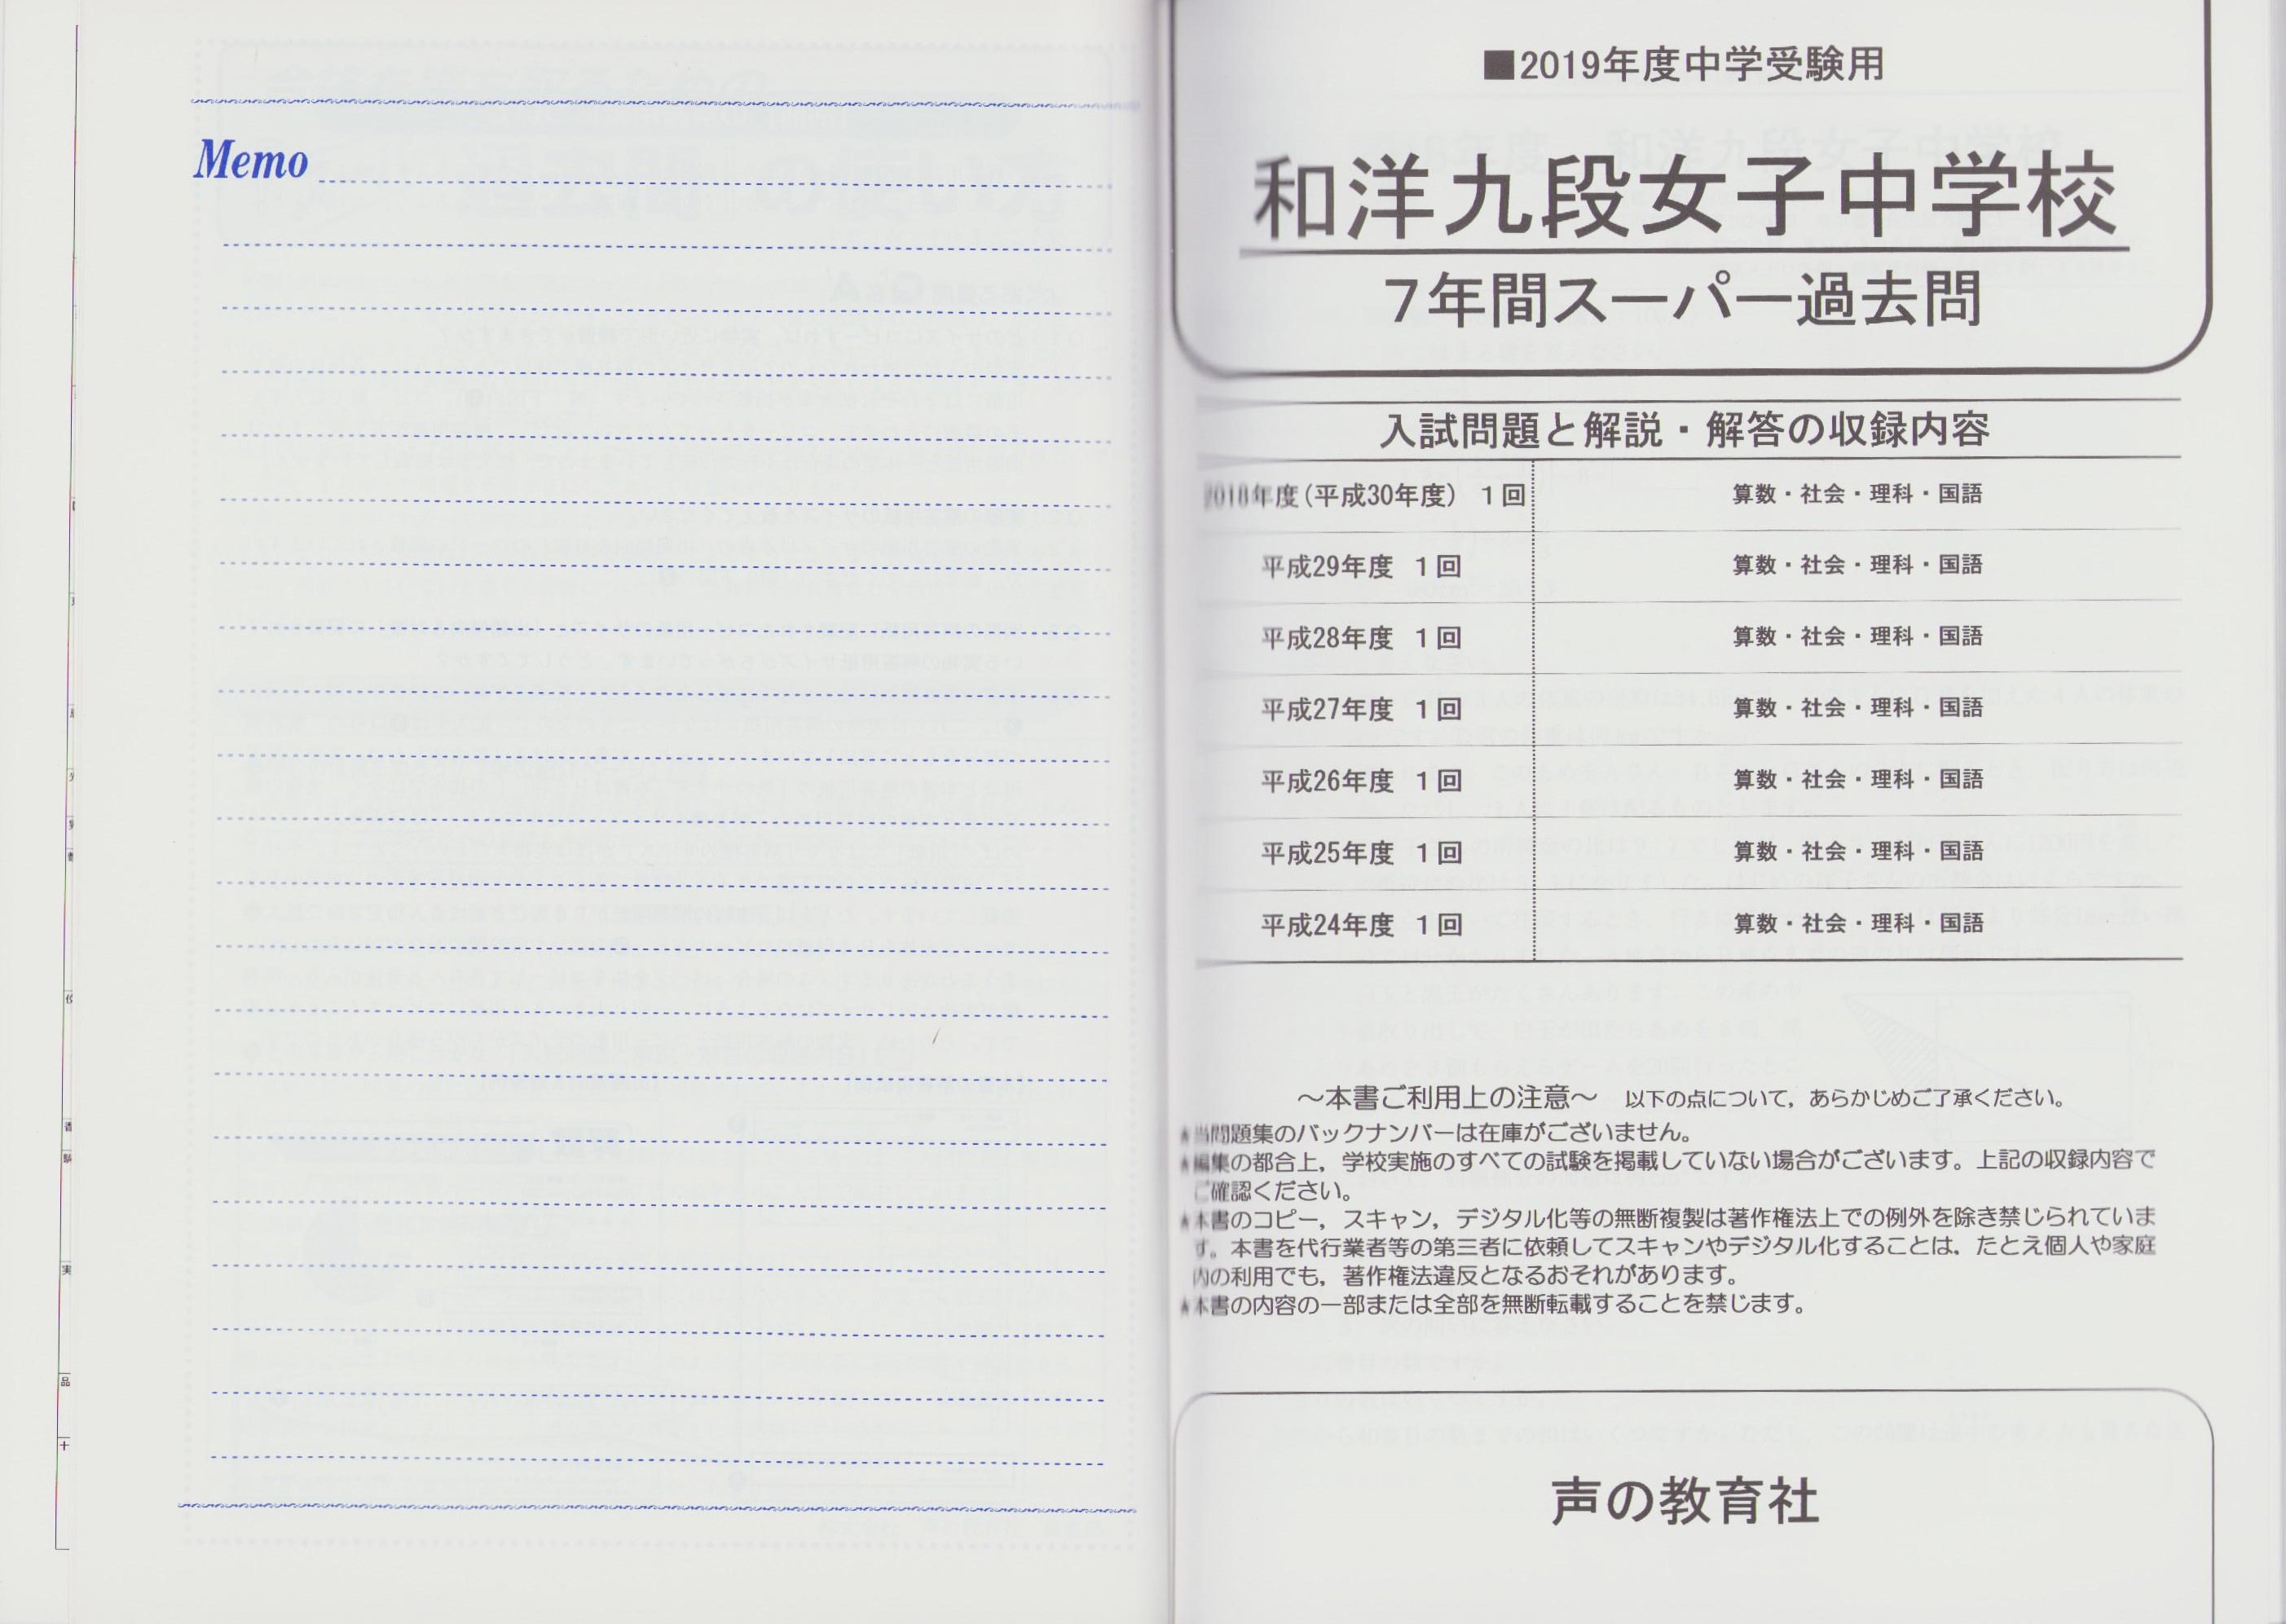 Memo
■2019年度中学受験用
和洋九段女子中学校
7年間スーパー過去問
入試問題と解説・解答の収録内容
2018年度(平成30年度) 1回 算数・社会・理科・国語
平成29年度 1回 算数・社会・理科・国語
平成28年度 1回 算数・社会・理科・国語
平成27年度 1回 算数・社会・理科・国語
平成26年度 1回 算数・社会・理科・国語
平成25年度 1回 算数・社会・理科・国語
平成24年度 1回 算数・社会・理科・国語
～本書ご利用上の注意～ 以下の点について，あらかじめご了承ください。
★当問題集のバックナンバーは在庫がございません。
★編集の都合上，学校実施のすべての試験を掲載していない場合がございます。上記の収録内容で
ご確認ください。
★本書のコピー，スキャン，デジタル化等の無断複製は著作権法上での例外を除き禁じられていま
す。本書を代行業者等の第三者に依頼してスキャンやデジタル化することは，たとえ個人や家庭
内の利用でも，著作権法違反となるおそれがあります。
★本書の内容の一部または全部を無断転載することを禁じます。
声の教育社